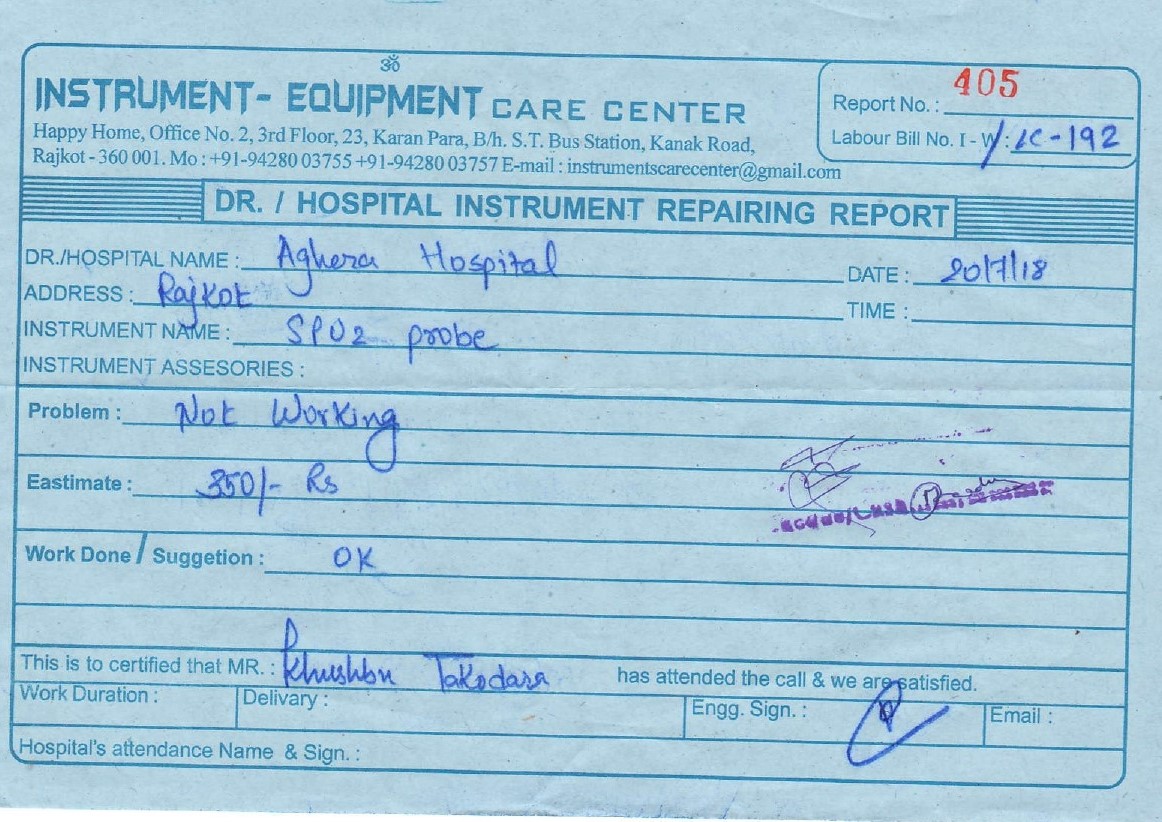 ॐ
INSTRUMENT- EQUIPMENT CARE CENTER
Happy Home, Office No. 2, 3rd Floor, 23, Karan Para, B/h. S.T. Bus Station, Kanak Road,
Rajkot - 360 001. Mo : +91-94280 03755 +91-94280 03757 E-mail : instrumentscarecenter@gmail.com
Report No. : 405
Labour Bill No. I - W/: IC-192
DR. / HOSPITAL INSTRUMENT REPAIRING REPORT
DR./HOSPITAL NAME : Aghera Hospital DATE : 20/7/18
ADDRESS : Rajkot TIME :
INSTRUMENT NAME : SPO2 probe
INSTRUMENT ASSESORIES :
Problem : Not Working
Eastimate : 350/- Rs
Work Done / Suggetion : OK
This is to certified that MR. : Khushbu Takodara has attended the call & we are satisfied.
Work Duration : Delivary : Engg. Sign. : Email :
Hospital's attendance Name & Sign. :